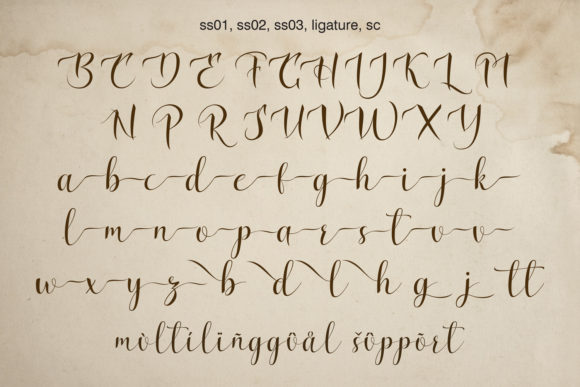 ss01, ss02, ss03, ligature, sc
B C D E F G H I J K L M
N P R S U V W X Y
a b c d e f g h i j k
l m n o p a r s t v v
w x y z b d l h g j tt
mùltílïñggûål šûppõrt